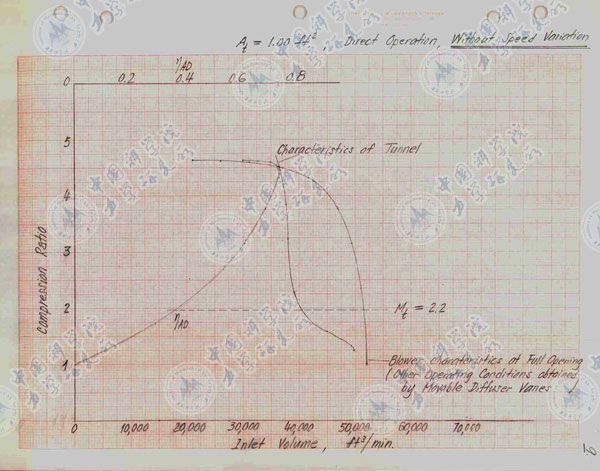 A_t = 1.00 ft², Direct Operation, Without Speed Variation
η_AD
0 0.2 0.4 0.6 0.8
5
Characteristics of Tunnel
4
3
Compression Ratio
2
M_t = 2.2
η_AD
1
Blower characteristics at Full Opening
(Other Operating Conditions obtained
by Movable Diffuser Vanes)
0 10,000 20,000 30,000 40,000 50,000 60,000 70,000
Inlet Volume, ft³/min.
中国科学院
力学研究所